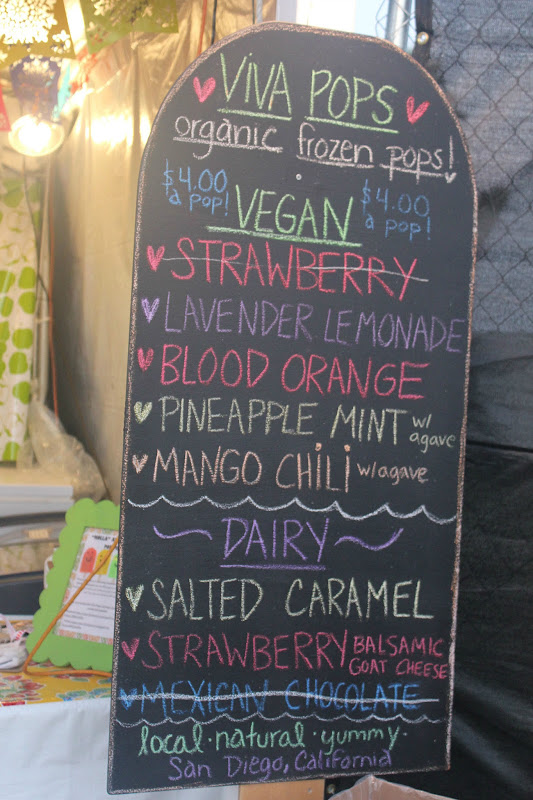 VIVA POPS
organic frozen pops!
$4.00 a pop!
$4.00 a pop!
VEGAN
STRAWBERRY
LAVENDER LEMONADE
BLOOD ORANGE
PINEAPPLE MINT w/ agave
MANGO CHILI w/agave
DAIRY
SALTED CARAMEL
STRAWBERRY BALSAMIC GOAT CHEESE
MEXICAN CHOCOLATE
local · natural · yummy ·
San Diego, California